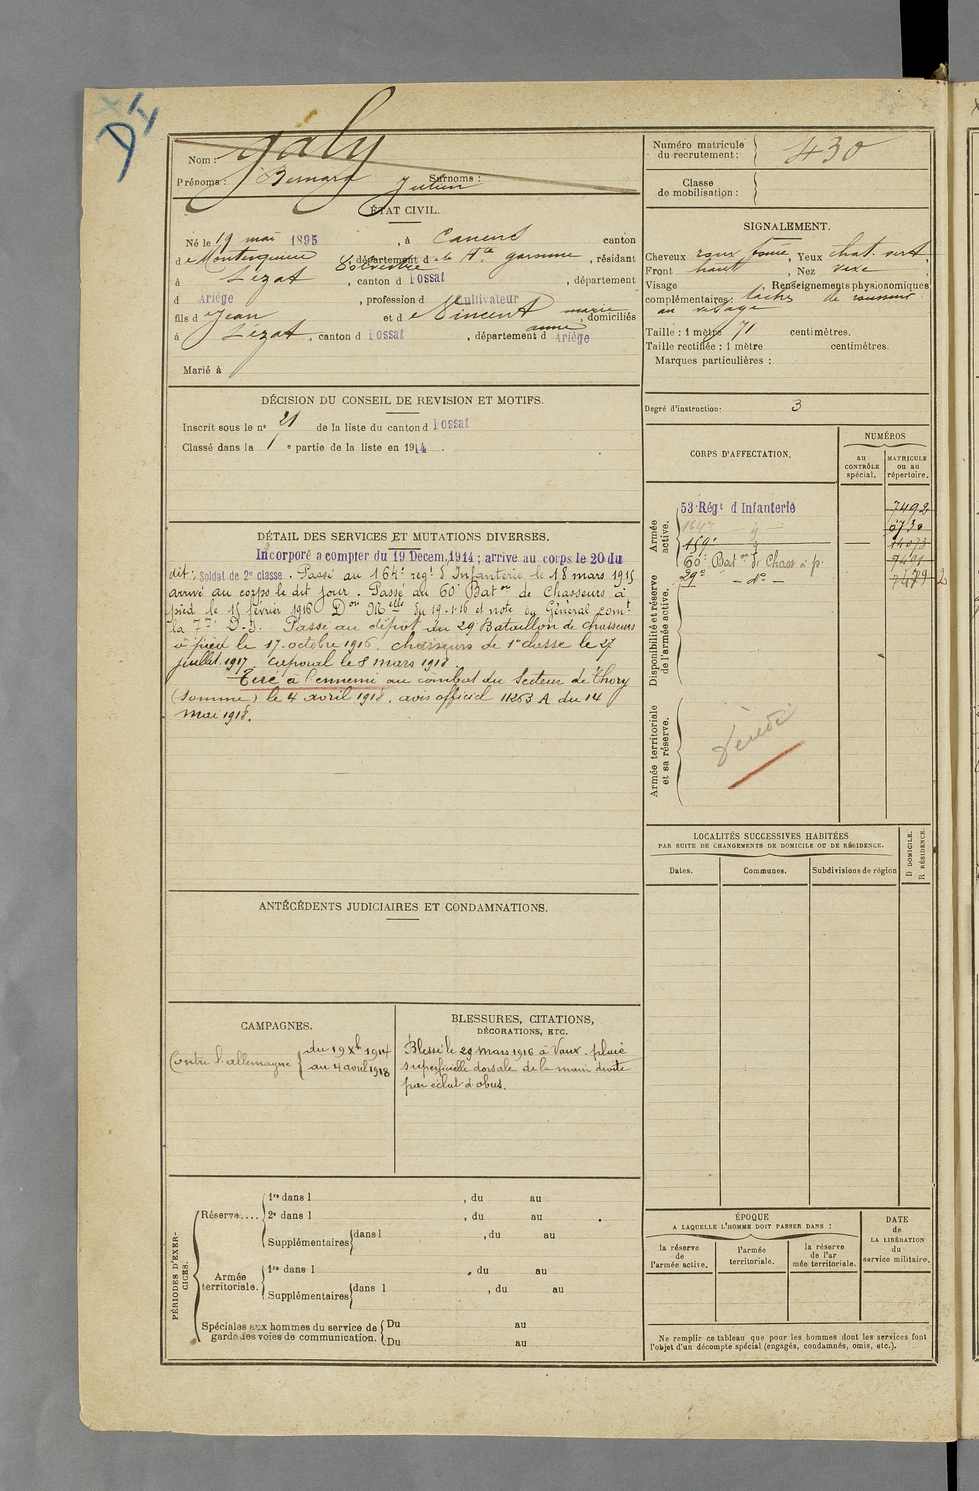 DI
Nom : Galy
Prénoms : Bernard Julien Surnoms :
Numéro matricule du recrutement : 430
Classe de mobilisation :
ÉTAT CIVIL.
Né le 19 mai 1895, à Canens canton
de Montesquieu Volvestre, département de la Hte garonne, résidant
à Lézat, canton d Fossat, département
d Ariège, profession d Cultivateur
fils de Jean et de Vincent marie anne, domiciliés
à Lézat, canton d Fossat, département d Ariège
Marié à
SIGNALEMENT.
Cheveux foncé, Yeux chat. vert,
Front haut, Nez
Visage, Renseignements physionomiques
complémentaires : taches de rousseur
au visage
Taille : 1 mètre 71 centimètres.
Taille rectifiée : 1 mètre centimètres.
Marques particulières :
Degré d'instruction : 3
DÉCISION DU CONSEIL DE REVISION ET MOTIFS.
Inscrit sous le n° 21 de la liste du canton d Fossat
Classé dans la 1 e partie de la liste en 1914.
DÉTAIL DES SERVICES ET MUTATIONS DIVERSES.
Incorporé a compter du 19 Decem. 1914 ; arrivé au corps le 20 du
dit, Soldat de 2e classe. Passé au 164e régt d'Infanterie le 18 mars 1915
arrivé au corps le dit jour. Passé au 60e Baton de Chasseurs à
pied le 15 février 1916 Don Melle du 19-1-16 et note du Général Comt
la 77e D.I. Passé au dépôt du 29 Bataillon de chasseurs
à pied le 17 octobre 1916. Chasseurs de 1e classe le 27
juillet 1917. Caporal le 8 mars 1918.
Tué à l'ennemi au combat du Secteur de Thory
(Somme) le 4 avril 1918. avis officiel 11263 A du 14
mai 1918.
CORPS D'AFFECTATION.
NUMÉROS
au CONTRÔLE spécial.
MATRICULE ou au répertoire.
Armée active.
53 Régt d Infanterie 7492
164e - d°
159e - d°
60e Baton de Chass à p.
29e - d° -
Disponibilité et réserve de l'armée active.
Armée territoriale et sa réserve.
Décédé
LOCALITÉS SUCCESSIVES HABITÉES
PAR SUITE DE CHANGEMENTS DE DOMICILE OU DE RÉSIDENCE.
Dates.
Communes.
Subdivisions de région
D DOMICILE.
R RÉSIDENCE.
ANTÉCÉDENTS JUDICIAIRES ET CONDAMNATIONS.
CAMPAGNES.
Contre l'allemagne { du 19 Xb 1914
au 4 avril 1918
BLESSURES, CITATIONS,
DÉCORATIONS, ETC.
Blessé le 29 mars 1916 à Vaux. plaie
superficielle dorsale de la main droite
par éclat d'obus.
PÉRIODES D'EXERCICES.
Réserve....
1re dans l, du au
2e dans l, du au
Supplémentaires dans l, du au
Armée territoriale.
1re dans l, du au
Supplémentaires dans l, du au
Spéciales aux hommes du service de garde des voies de communication.
Du au
Du au
ÉPOQUE
A LAQUELLE L'HOMME DOIT PASSER DANS :
la réserve de l'armée active.
l'armée territoriale.
la réserve de l'armée territoriale.
DATE de LA LIBÉRATION du service militaire.
Ne remplir ce tableau que pour les hommes dont les services font
l'objet d'un décompte spécial (engagés, condamnés, omis, etc.).